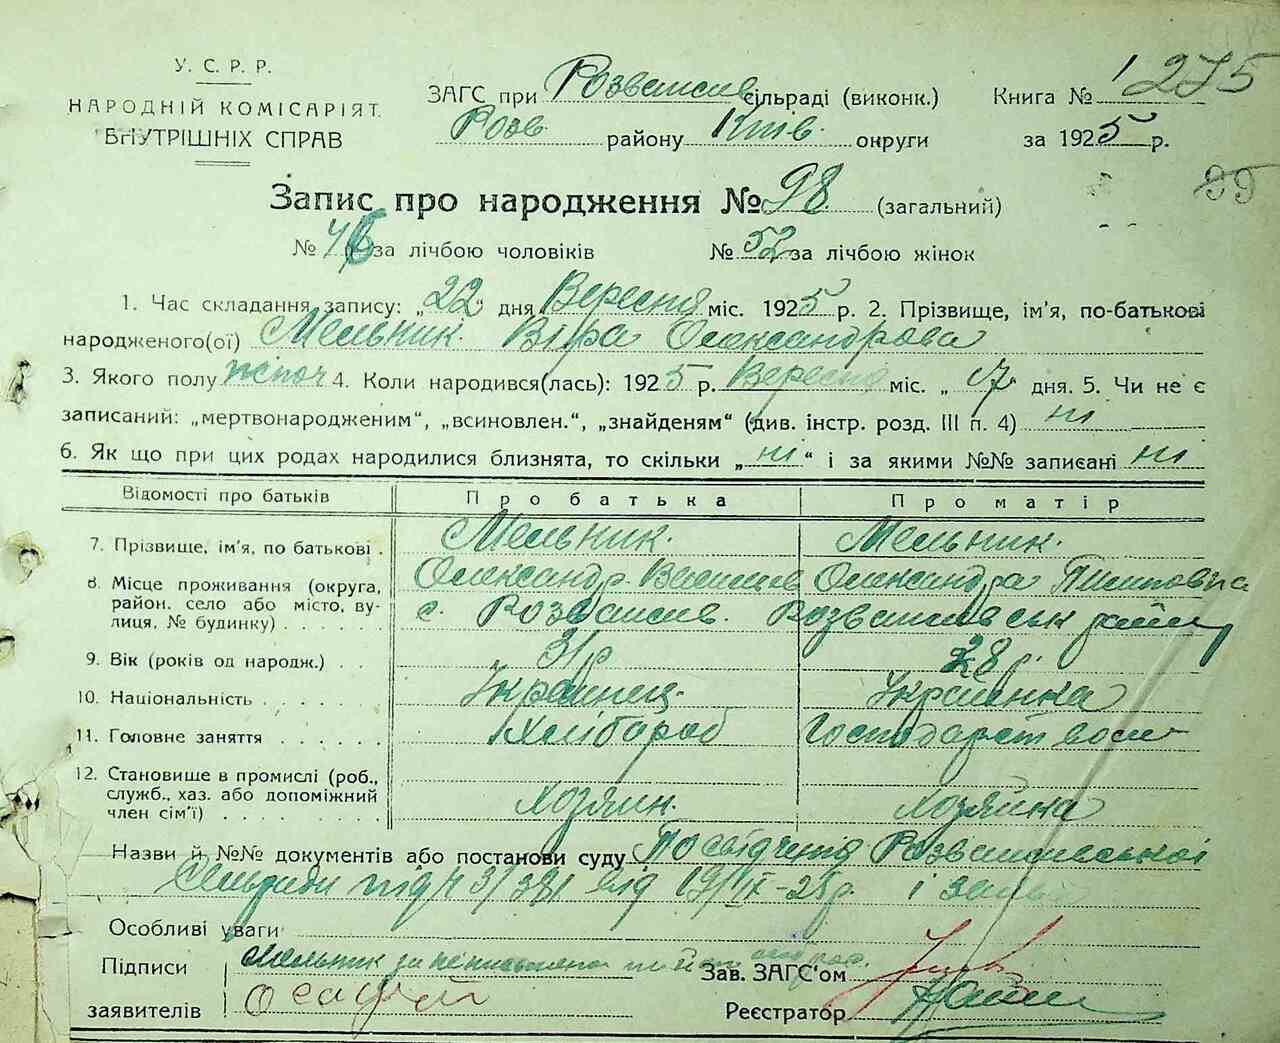 У. С. Р. Р.
НАРОДНІЙ КОМІСАРІЯТ
ВНУТРІШНІХ СПРАВ
ЗАГС при Розважів сільраді (виконк.)
Розв. району Київ. округи
Книга № 1
275
за 1925 р.
99
Запис про народження № 98 (загальний)
№ 46 за лічбою чоловіків № 52 за лічбою жінок
1. Час складання запису: „22" дня Вересня міс. 1925 р. 2. Прізвище, ім'я, по-батькові
народженого(ої) Мельник Віра Олександрова
3. Якого полу жіноч 4. Коли народився(лась): 1925 р. Вересня міс. „17" дня. 5. Чи не є
записаний: „мертвонародженим", „всиновлен.", „знайденям" (див. інстр. розд. III п. 4) ні
6. Як що при цих родах народилися близнята, то скільки „ні" і за якими №№ записані ні
Відомості про батьків Про батька Про матір
7. Прізвище, ім'я, по батькові . Мельник. Мельник.
Олександр Олександра
8. Місце проживання (округа, район, село або місто, вулиця, № будинку) . . . . . с. Розважів. Розважівськ району
9. Вік (років од народж.) . . 31 р 28 р.
10. Національність . . . . . . Українець. Українка
11. Головне заняття . . . . . . Хлібороб Господарством
12. Становище в промислі (роб., служб., хаз. або допоміжний член сім'ї) . . . . . . . Хозяин. Хозяйка
Назви й №№ документів або постанови суду Посвідчення Розважівської
Сільради під № 3/381 від 19/IX-25 р. і заява
Особливі уваги
Підписи Мельник за неписьмена
заявителів Осадчий
Зав. ЗАГС'ом
Реєстратор